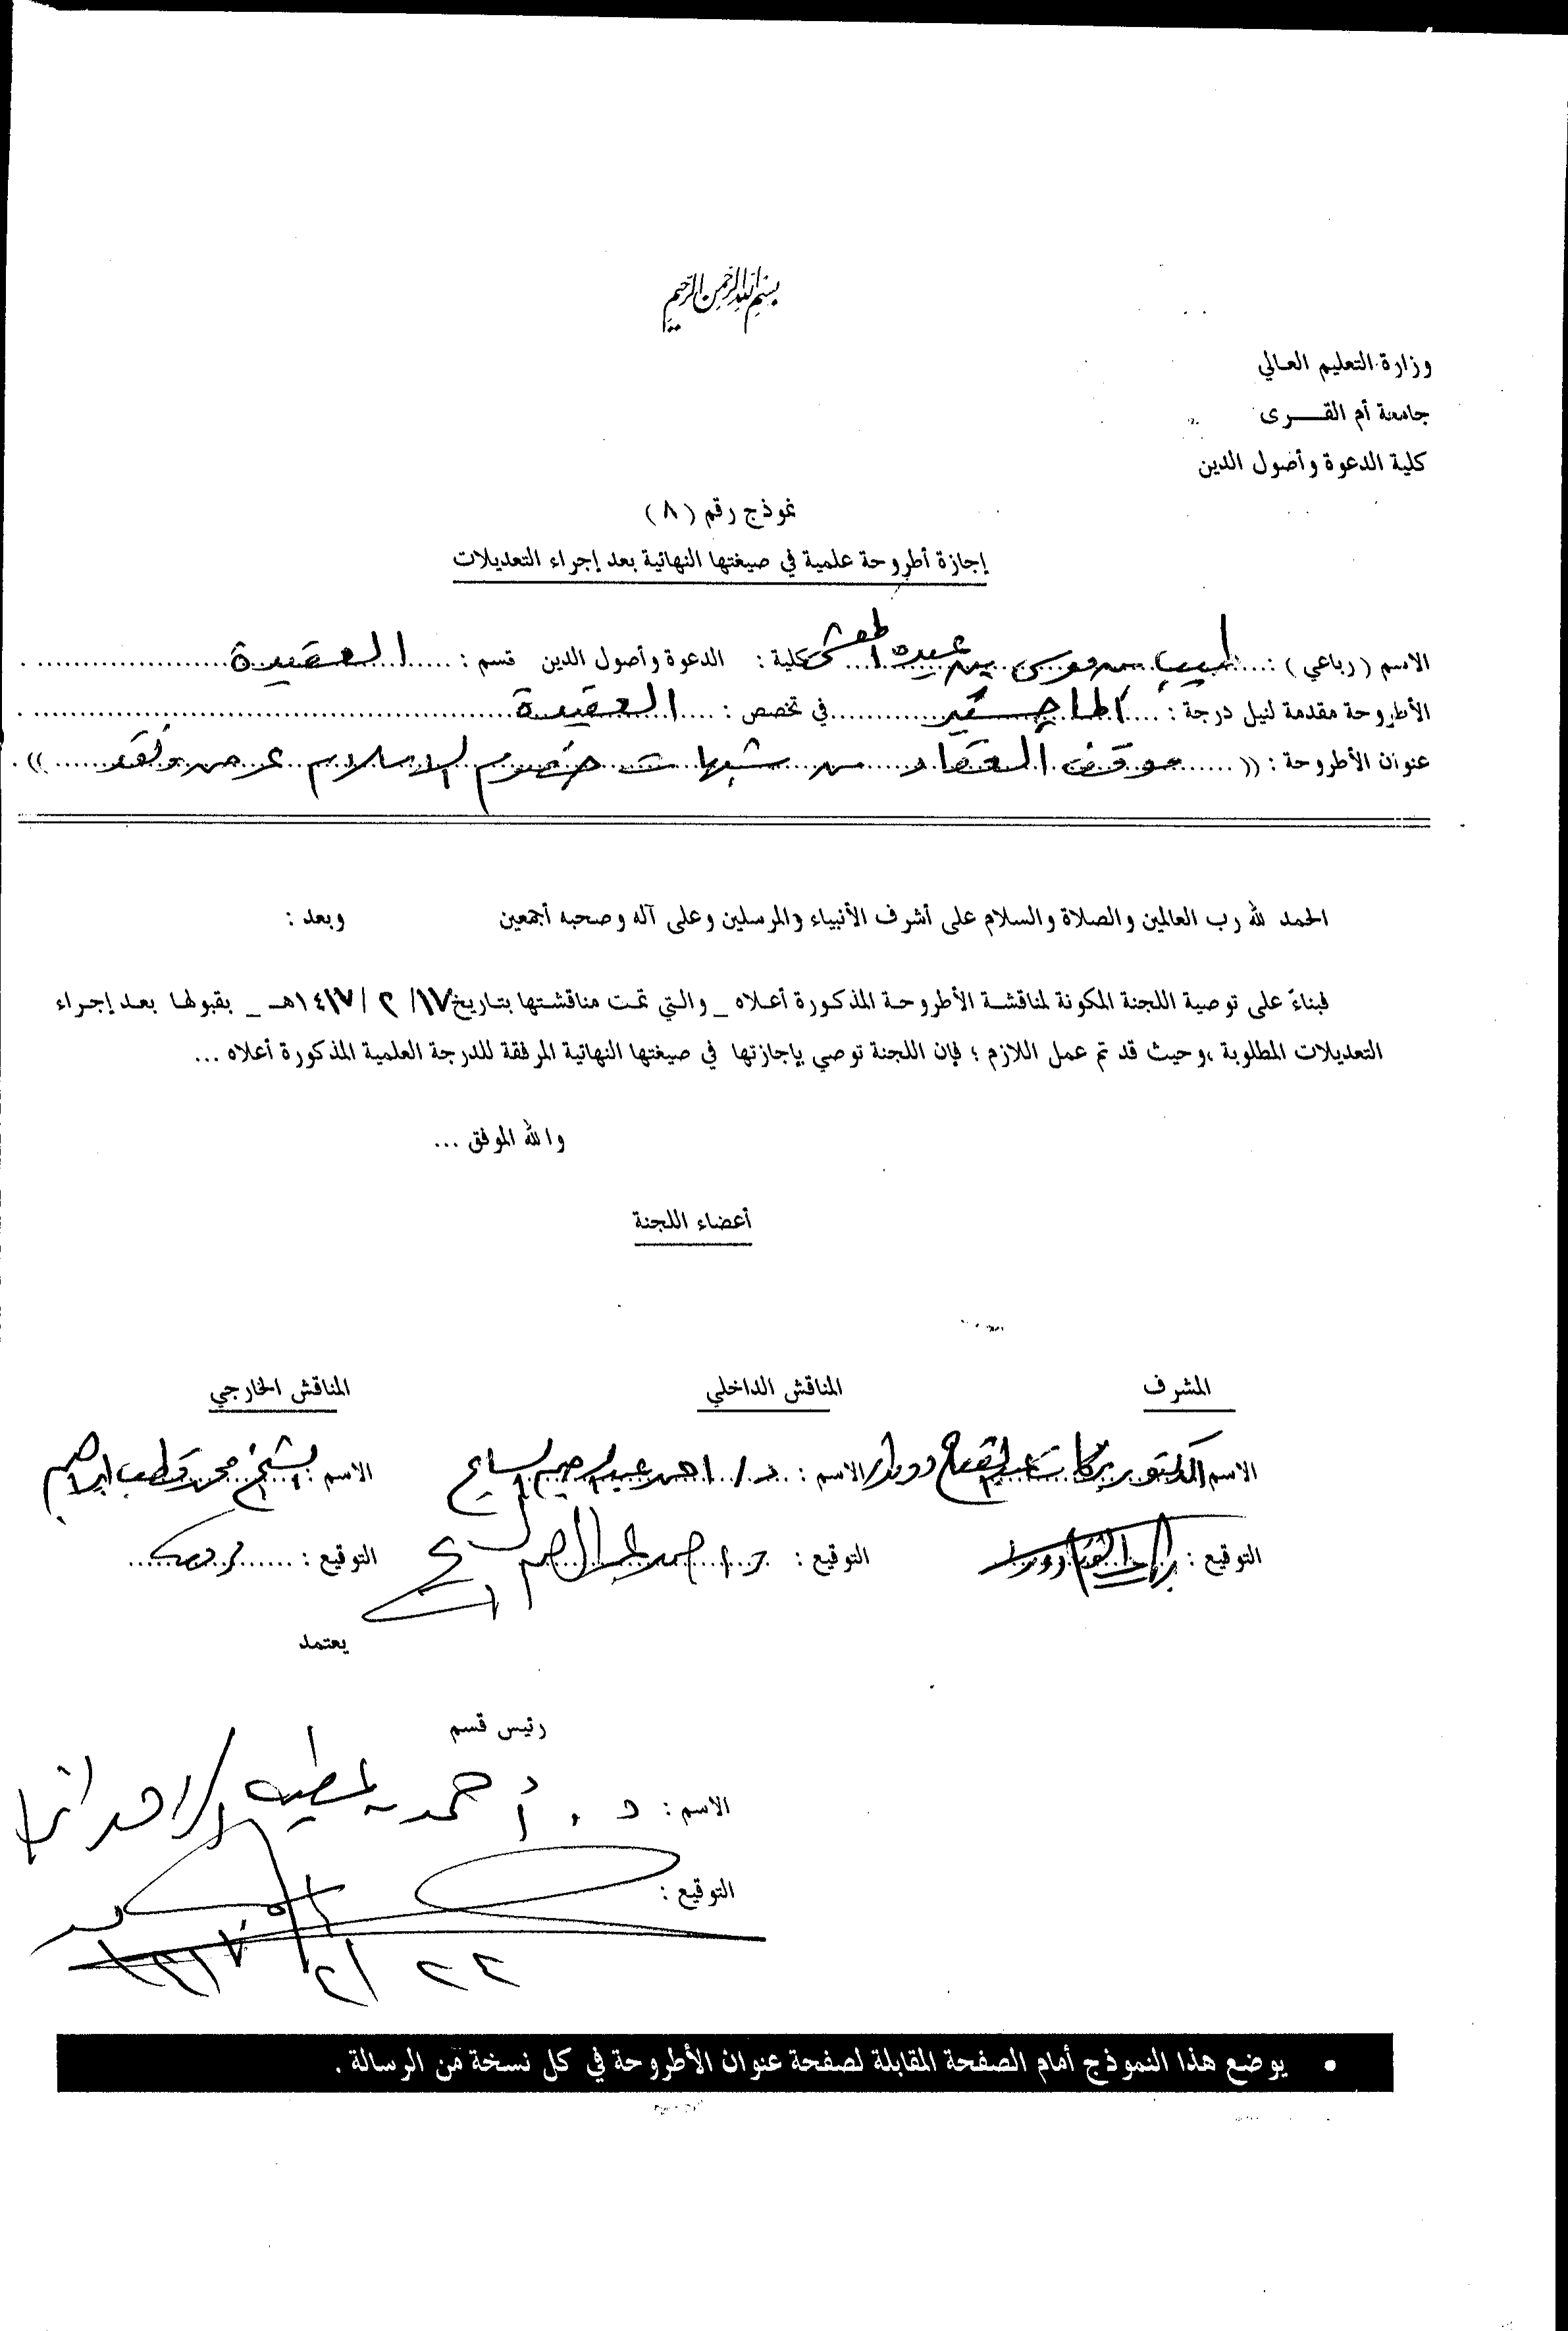 بسم الله الرحمن الرحيم
وزارة التعليم العالي
جامعة أم القــــرى
كلية الدعوة وأصول الدين
نموذج رقم ( ٨ )
إجازة أطروحة علمية في صيغتها النهائية بعد إجراء التعديلات
الاسم ( رباعي ) : بن موسى بن عبده كلية : الدعوة وأصول الدين قسم : العقيدة
الأطروحة مقدمة لنيل درجة : الماجستير في تخصص : العقيدة
عنوان الأطروحة : (( موقف العقاد من شبهات خصوم الإسلام عرض ونقد )) .
الحمد لله رب العالمين والصلاة والسلام على أشرف الأنبياء والمرسلين وعلى آله وصحبه أجمعين وبعد :
فبناءً على توصية اللجنة المكونة لمناقشة الأطروحة المذكورة أعلاه _ والتي تمت مناقشتها بتاريخ ١٧/ ٢ / ١٤١٧هـ _ بقبولها بعد إجراء
التعديلات المطلوبة ،وحيث قد تم عمل اللازم ؛ فإن اللجنة توصي بإجازتها في صيغتها النهائية المرفقة للدرجة العلمية المذكورة أعلاه ...
والله الموفق ...
أعضاء اللجنة
المشرف المناقش الداخلي المناقش الخارجي
الاسم : الدكتور بركات عبدالفتاح دويدار الاسم : د/ احمد عبدالرحيم السايح الاسم : الشيخ محمد قطب ابراهيم
التوقيع : التوقيع : التوقيع :
يعتمد
رئيس قسم
الاسم : د . أحمد بن عطيه الزهراني
التوقيع :
٢٢ / ٢ / ١٤١٧
• يوضع هذا النموذج أمام الصفحة المقابلة لصفحة عنوان الأطروحة في كل نسخة من الرسالة .